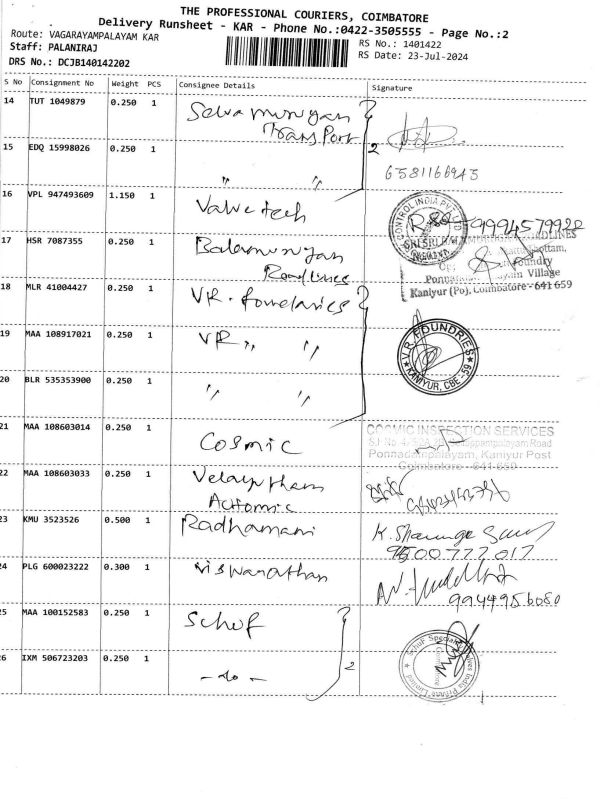 THE PROFESSIONAL COURIERS, COIMBATORE
Delivery Runsheet - KAR - Phone No.:0422-3505555 - Page No.:2
Route: VAGARAYAMPALAYAM KAR
RS No.: 1401422
Staff: PALANIRAJ
RS Date: 23-Jul-2024
DRS No.: DCJB140142202
S No Consignment No Weight PCS Consignee Details Signature
14 TUT 1049879 0.250 1 Selvamurugan
Transport
2
15 EDQ 15998026 0.250 1 " "
6381166945
16 VPL 947493609 1.150 1 Valvetech
9994579922
17 HSR 7087355 0.250 1 Balamurugan
Roadlines
Village
Kaniyur (Po), Coimbatore - 641 659
18 MLR 41004427 0.250 1 VR. foundaries
19 MAA 108917021 0.250 1 VR " "
V.R. FOUNDRIES
KANIYUR, CBE-59
20 BLR 535353900 0.250 1 " "
21 MAA 108603014 0.250 1 Cosmic
COSMIC INSPECTION SERVICES
Ponnadampalayam, Kaniyur Post
Coimbatore - 641 659
22 MAA 108603033 0.250 1 Velayutham
23 KMU 3523526 0.500 1 Radhamani
9500777017
24 PLG 600023222 0.300 1 Viswanathan
9944956080
25 MAA 100152583 0.250 1 Schuf
26 IXM 506723203 0.250 1 - do -
2